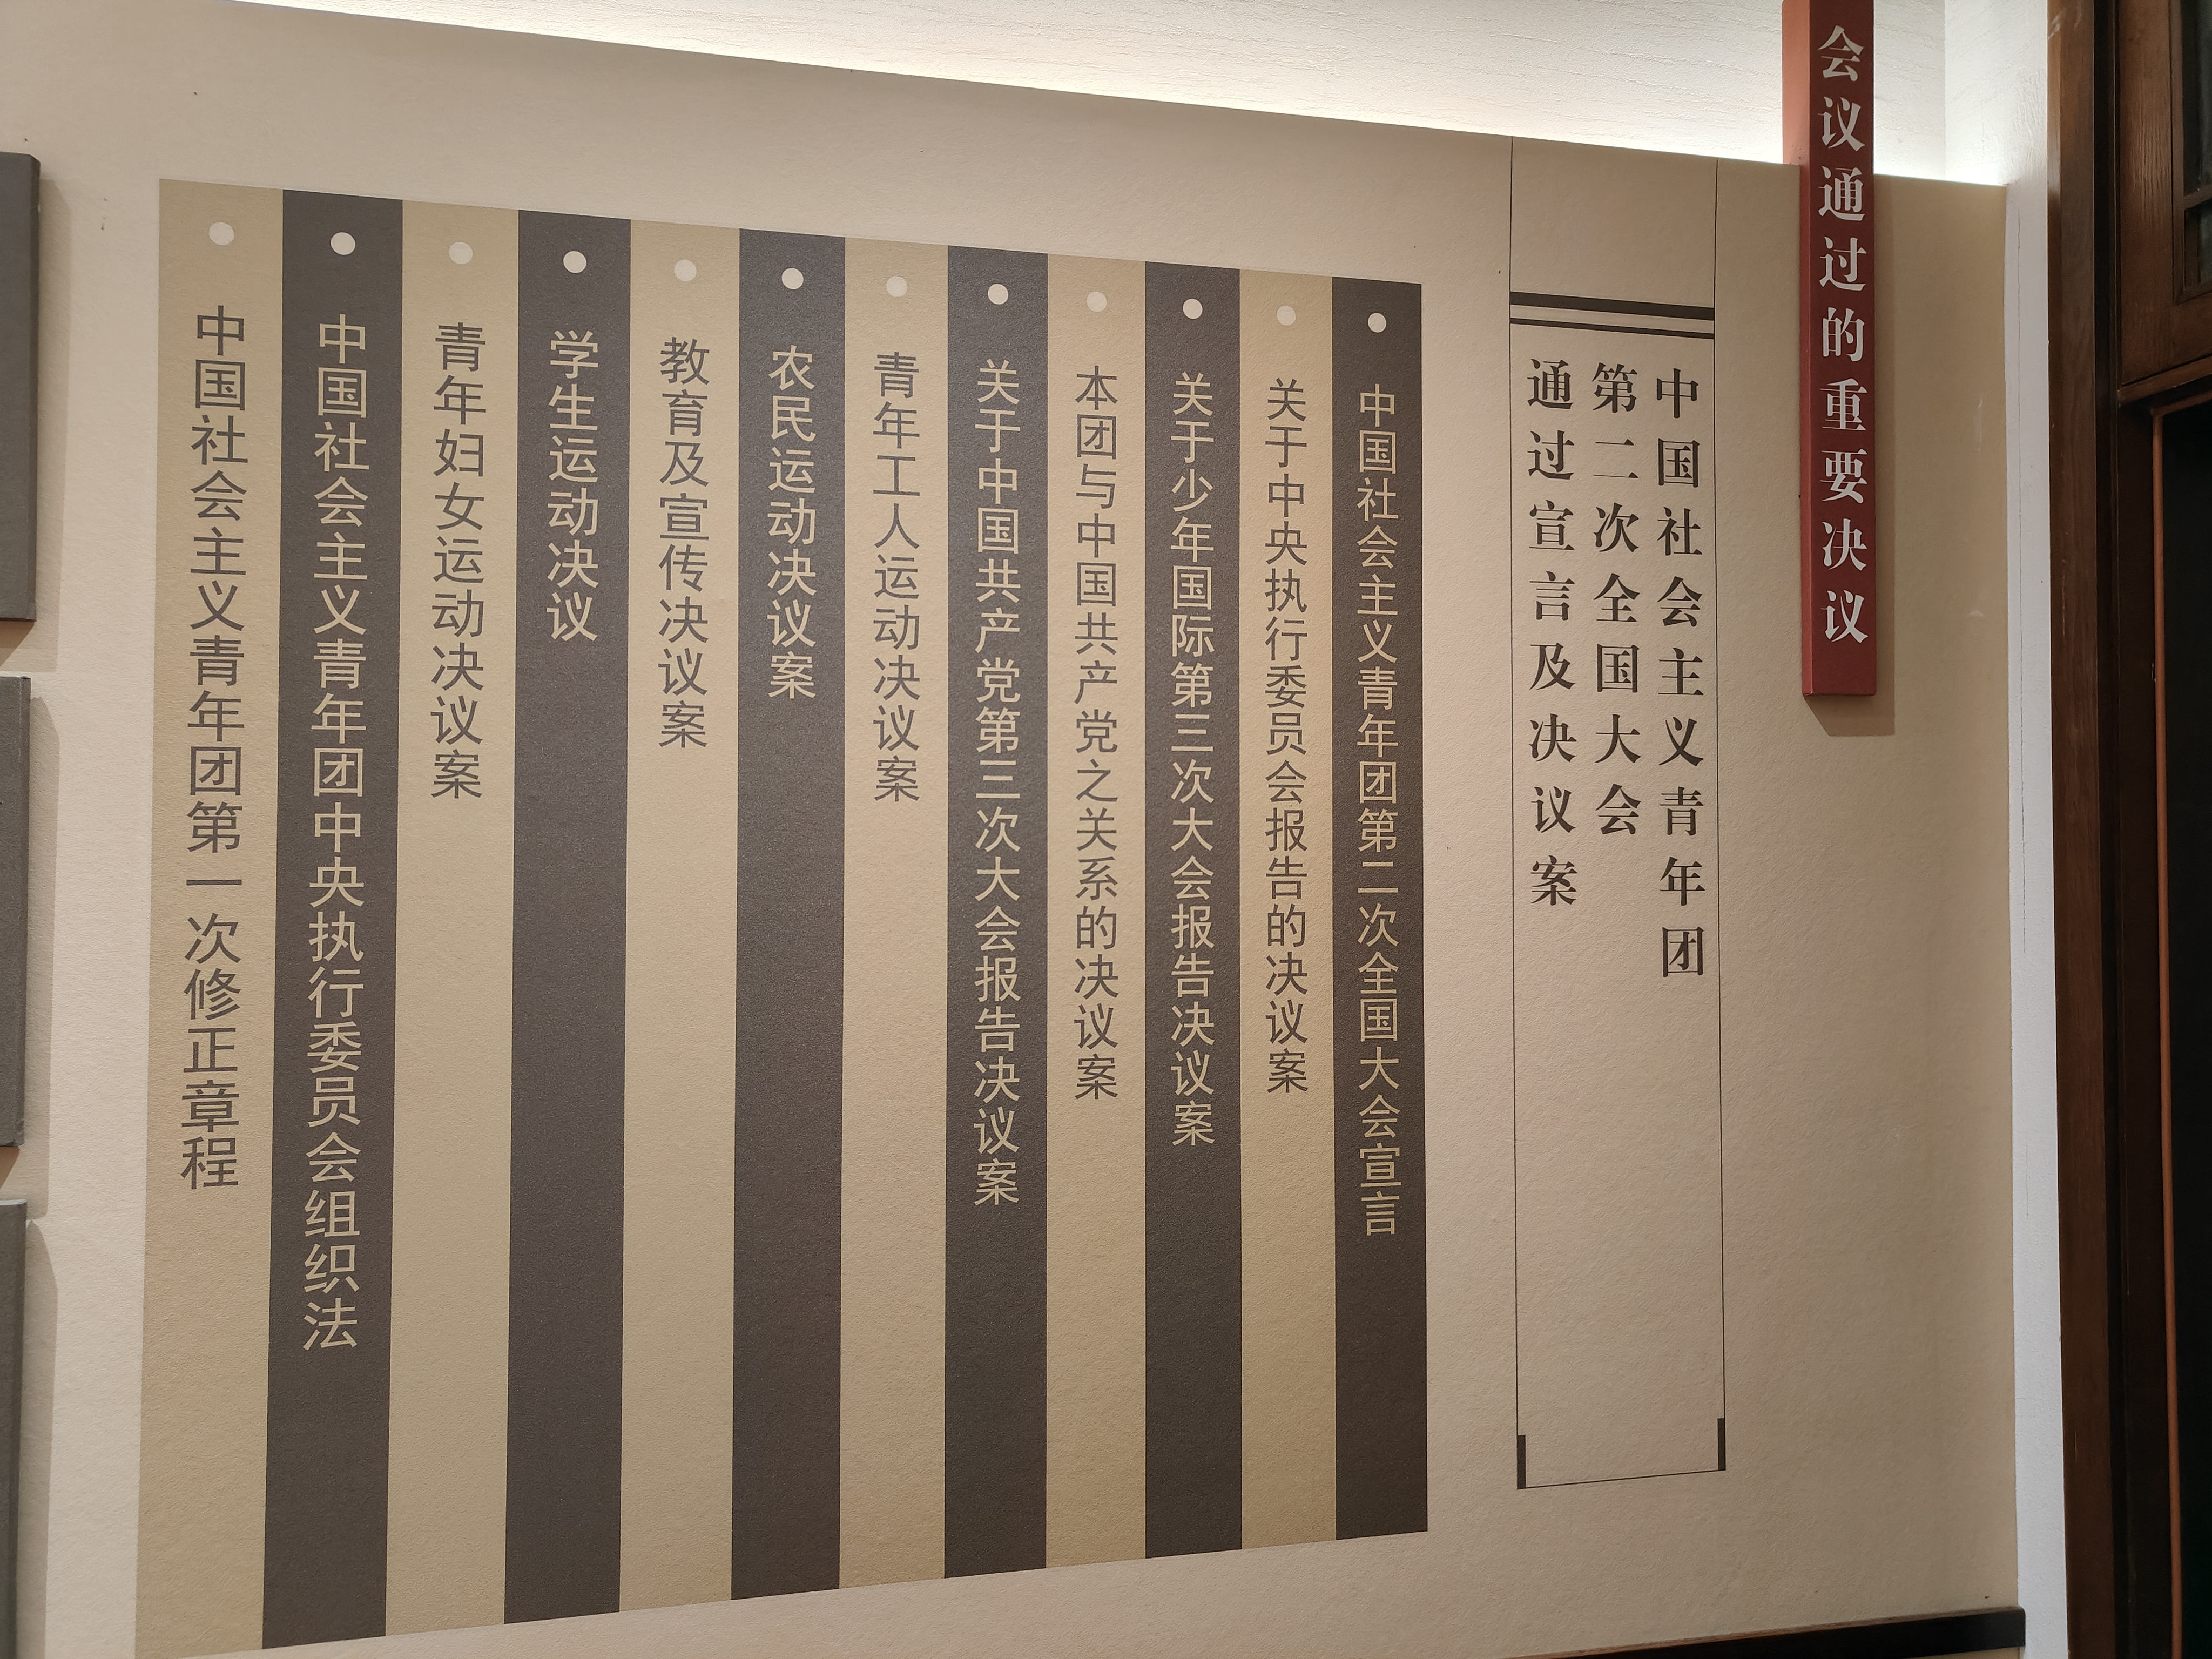 会议通过的重要决议
中国社会主义青年团
第二次全国大会
通过宣言及决议案
中国社会主义青年团第二次全国大会宣言
关于中央执行委员会报告的决议案
关于少年国际第三次大会报告决议案
本团与中国共产党之关系的决议案
关于中国共产党第三次大会报告决议案
青年工人运动决议案
农民运动决议案
教育及宣传决议案
学生运动决议
青年妇女运动决议案
中国社会主义青年团中央执行委员会组织法
中国社会主义青年团第一次修正章程